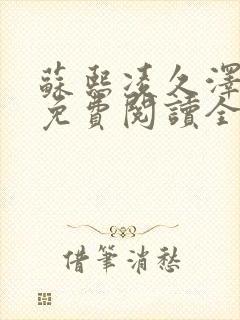 蘇熙凌久澤
免費閱讀全
借筆消愁